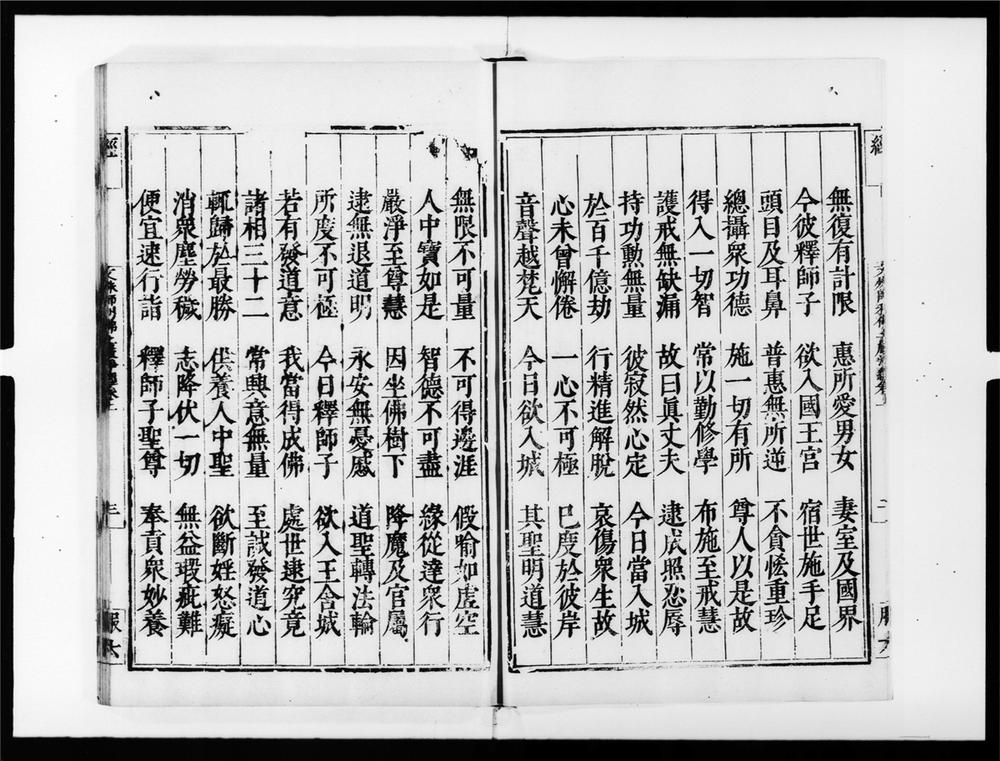 無復有計限　惠所愛男女　妻室及國界
今彼釋師子　欲入國王宮　宿世施手足
頭目及耳鼻　普惠無所逆　不貪悋重珍
總攝衆功德　施一切有所　尊人以是故
得入一切智　常以勤修學　布施至戒慧
護戒無缺漏　故曰眞丈夫　逮成照忍辱
持功勲無量　彼寂然心定　今日當入城
於百千億劫　行精進解脫　哀傷衆生故
心未曾懈倦　一心不可極　已度於彼岸
音聲越梵天　今日欲入城　其聖明道慧
無限不可量　不可得邊涯　假喻如虛空
人中寶如是　智德不可盡　緣從達衆行
嚴淨至尊慧　因坐佛樹下　降魔及官屬
逮無退道明　永安無憂慼　道聖轉法輪
所度不可極　今日釋師子　欲入王舍城
若有發道意　我當得成佛　處世逮究竟
諸相三十二　常興意無量　至誠發道心
輒歸於最勝　供養人中聖　欲斷婬怒癡
消衆塵勞穢　志降伏一切　無益瑕疵難
便宜速行詣　釋師子聖尊　奉貢衆妙養
經
三